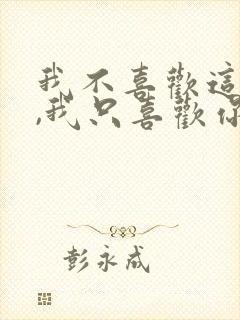 我不喜歡這
,我只喜歡你
彭永成